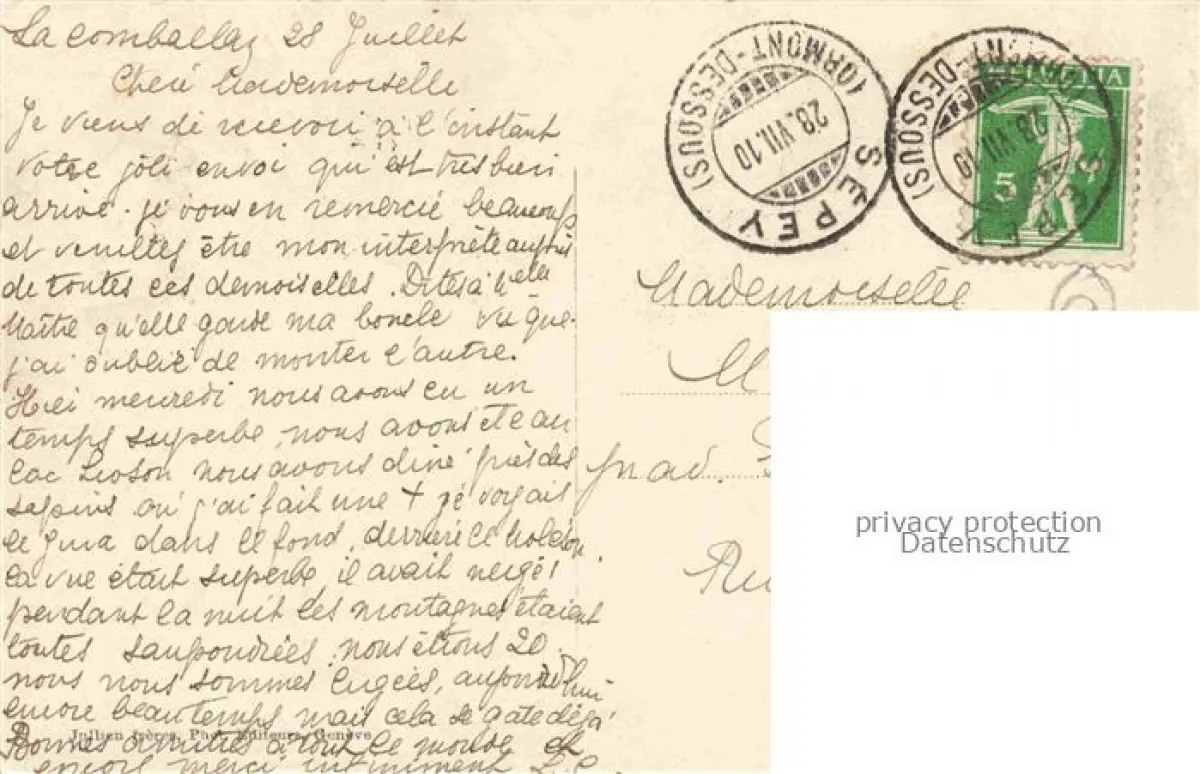 La Comballaz 28 Juillet
Chère Mademoiselle
Je viens de recevoir à l'instant
votre joli envoi qui est très bien
arrivé. je vous en remercie beaucoup
et veuillez être mon interprète auprès
de toutes ces demoiselles. Dites à
Maître qu'elle garde ma boucle vu que
j'ai oublié de monter l'autre.
Hier mercredi nous avons eu un
temps superbe, nous avons été au
lac Lioson nous avons diné près des
sapins où j'ai fait une + je voyais
le Jura dans le fond, derrière le
la vue était superbe, il avait neigé
pendant la nuit les montagnes étaient
toutes saupoudrées, nous étions 20.
nous nous sommes lugées, aujourd'hui
encore beau temps mais cela se gate déjà
Bonnes amitiés à tout le monde et
encore merci
Jullien frères, Phot. Editeurs, Genève
SÉPEY (ORMONT-DESSOUS)
28.VII.10
SÉPEY (ORMONT-DESSOUS)
28.VII.10
HELVETIA
5
Mademoiselle
M
Ru
privacy protection
Datenschutz